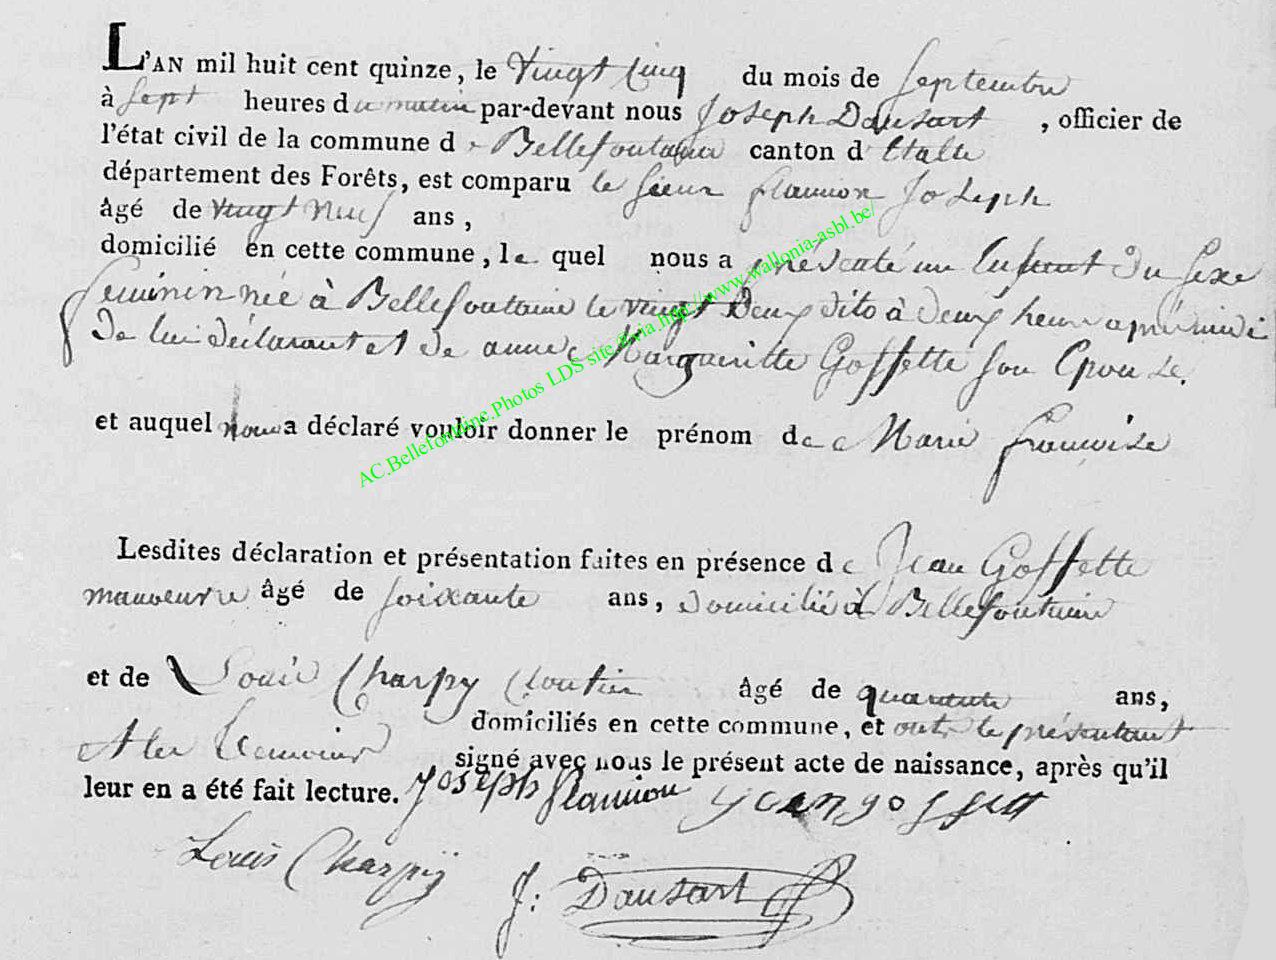 L'AN mil huit cent quinze, le Vingt Cinq du mois de Septembre
à Sept heures du matin par-devant nous Joseph Dausart, officier de
l'état civil de la commune de Bellefontaine canton d'Etalle
département des Forêts, est comparu le Sieur flamion Joseph
âgé de vingt Neuf ans,
domicilié en cette commune, le quel nous a présenté un Enfant du Sexe
feminin née à Bellefontaine le vingt Deux dito à deux heures aprés midi
de lui déclarant et de anne Margueritte Goffette son Epouse.
et auquel nous a déclaré vouloir donner le prénom de Marie françoise
Lesdites déclaration et présentation faites en présence de Jean Goffette
manoeuvre âgé de soixante ans, domicilié à Bellefontaine
et de Louis Charpy Cloutier âgé de quarante ans,
domiciliés en cette commune, et outre le présentant
et les temoins signé avec nous le présent acte de naissance, après qu'il
leur en a été fait lecture. Joseph flamion jean goffett
Louis Charpÿ J: Dausart
AC.Bellefontaine.Photos LDS site d/via http://www.wallonia-asbl.be/